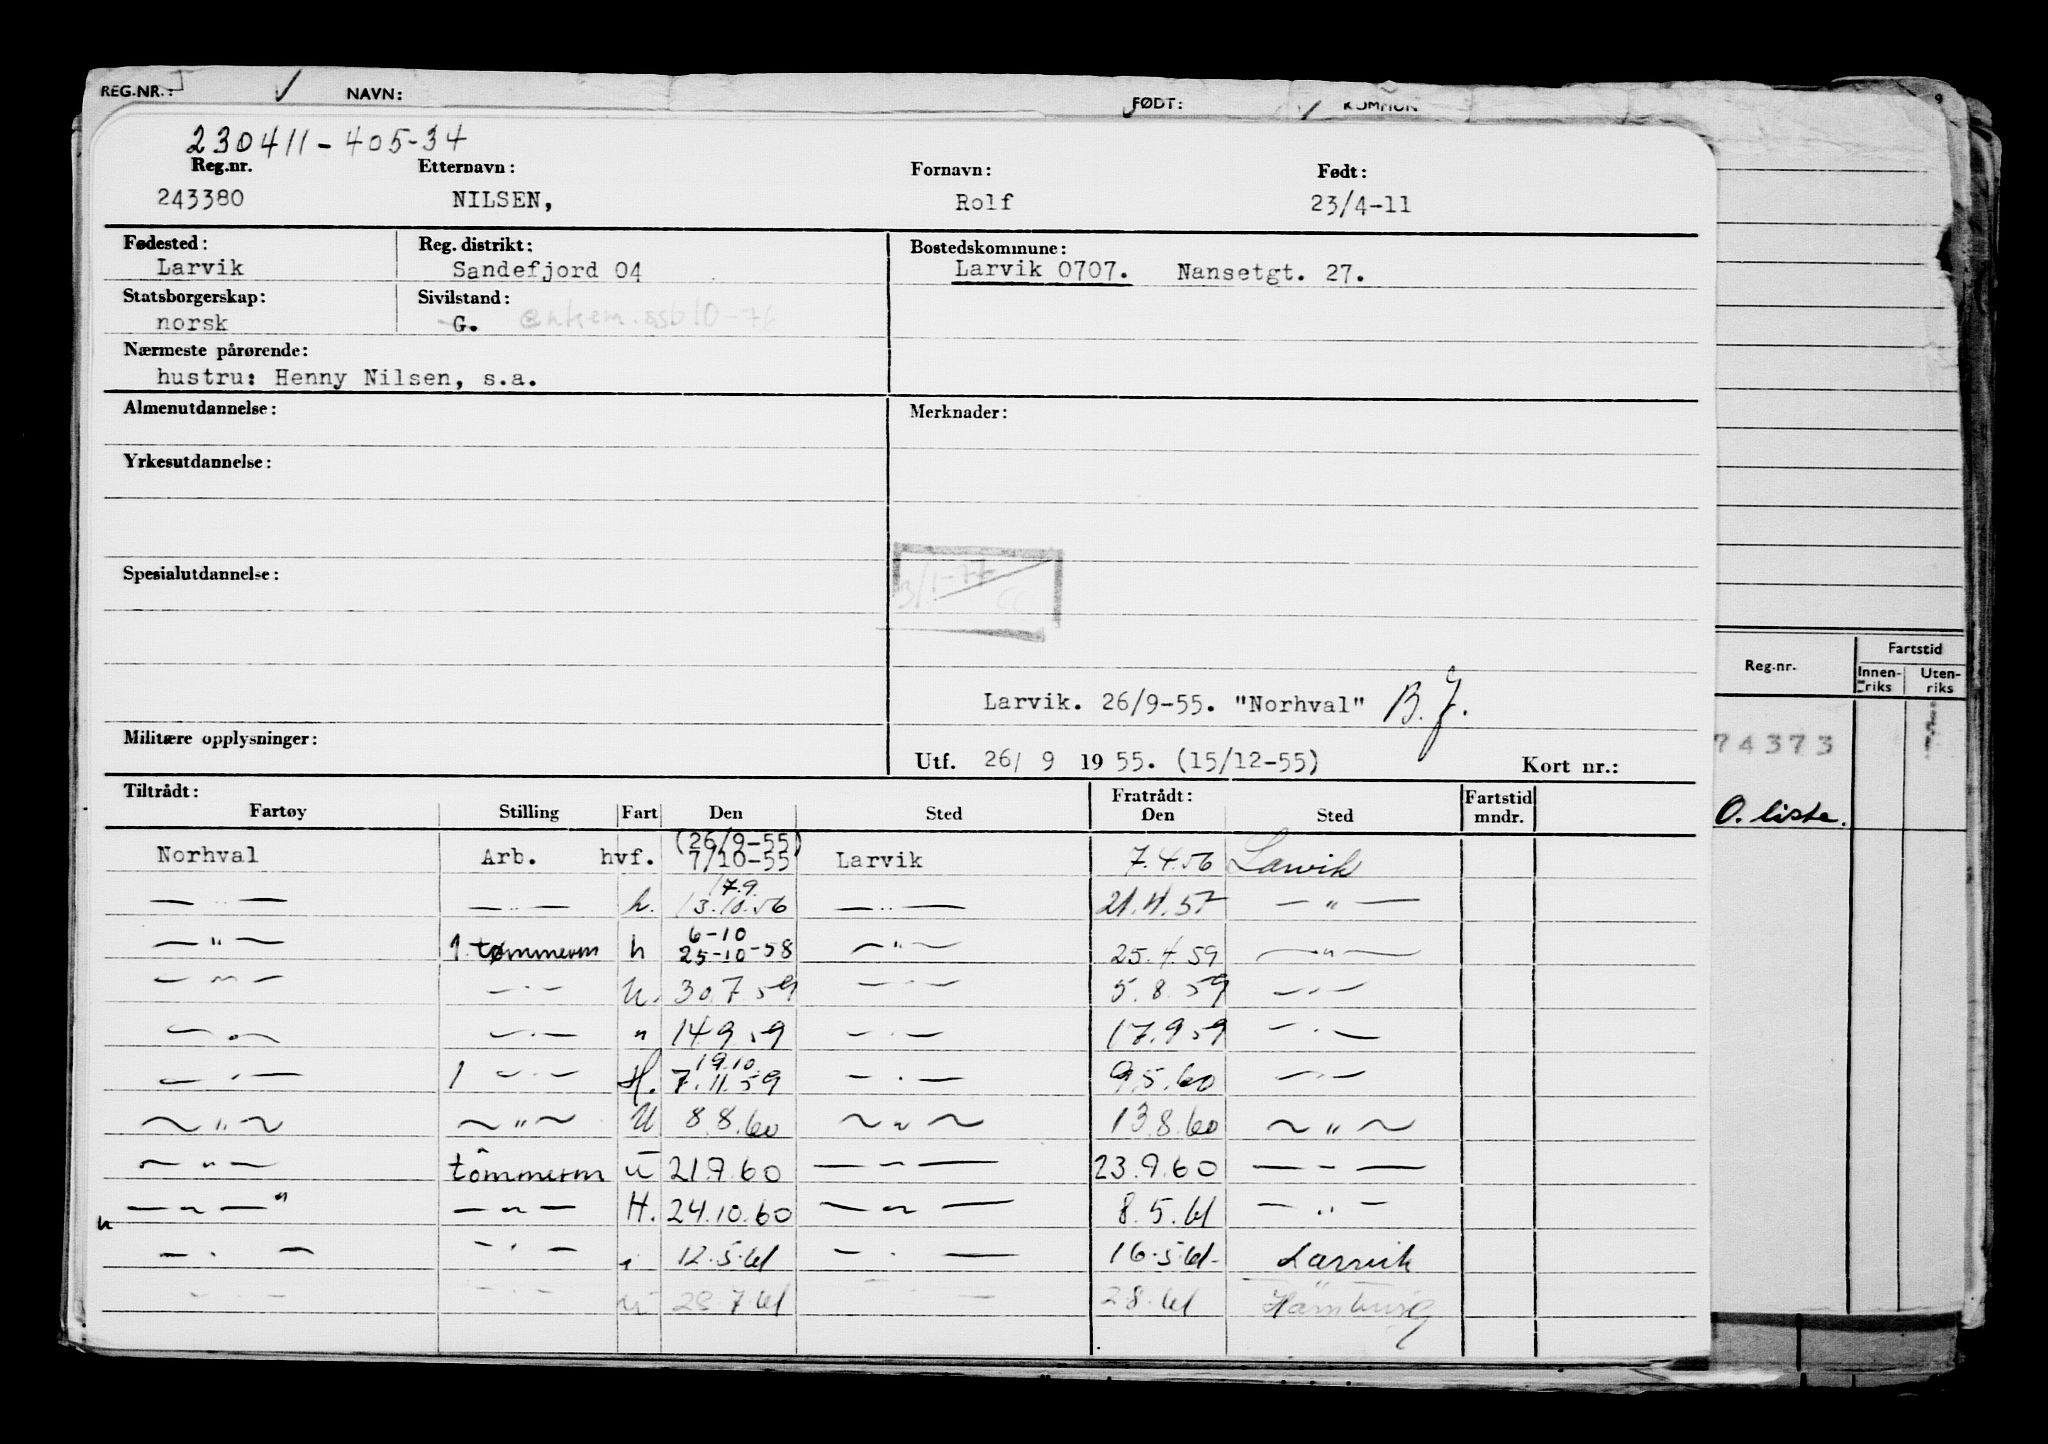 REG.NR.: NAVN: FØDT: KOMMUN
230411-405-34
Reg.nr. Etternavn: Fornavn: Født:
243380 NILSEN, Rolf 23/4-11
Fødested: Reg. distrikt: Bostedskommune:
Larvik Sandefjord 04 Larvik 0707. Nansetgt. 27.
Statsborgerskap: Sivilstand:
norsk G.
Nærmeste pårørende:
hustru: Henny Nilsen, s.a.
Almenutdannelse: Merknader:
Yrkesutdannelse:
Spesialutdannelse:
3/1-77
Reg.nr. Fartstid
Innen-riks Uten-riks
Larvik. 26/9-55. "Norhval" B.J.
Militære opplysninger:
74373
Utf. 26/ 9 1955. (15/12-55) Kort nr.:
Tiltrådt: Fratrådt:
Fartøy Stilling Fart Den Sted Den Sted Fartstid mndr.
O. liste.
(26/9-55)
Norhval Arb. hvf. 7/10-55 Larvik 7.4.56 Larvik
17.9.
— " — — " — h. 13.10.56 — " — 21.4.57 — " —
6-10
— " — 1. tømmerm h 25-10-58 — " — 25.4.59 — " —
— " — — " — U. 30.7.59 — " — 5.8.59 — " —
— " — — " — " 14 9.59 — " — 17.9.59 — " —
19.10.
— " — 1 — " — H. 7.11.59 — " — 9.5.60 — " —
— " — — " — U 8.8.60 — " — 13.8.60 — " —
— " — tömmerm u 21.9.60 — " — 23.9.60 — " —
— " — " — " — H. 24.10.60 — " — 8.5.61 — " —
— " — — " — " 12.5.61 — " — 16.5.61 Larvik
— " — — " — u 28.7.61 — " — 2 8.61 Hamburg